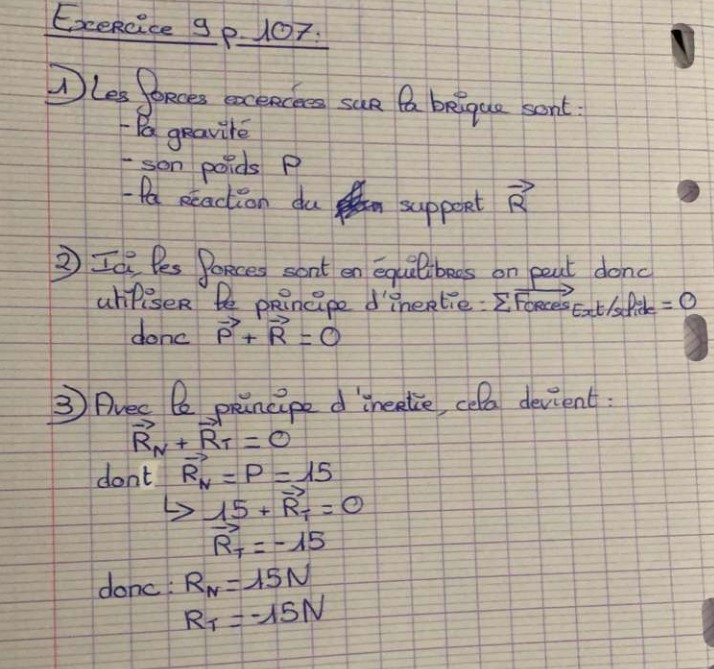 Exercice 9 p. 107.
1) Les forces excercées sur la brique sont:
- la gravité
- son poids P
- la réaction du support R⃗
2) Ici, les forces sont en équilibres on peut donc
utiliser le principe d'inertie: ΣForces⃗ Ext/solide = 0
donc P⃗ + R⃗ = 0
3) Avec le principe d'inertie, cela devient:
R⃗N + R⃗T = 0
dont R⃗N = P = 15
↳ 15 + R⃗T = 0
R⃗T = -15
donc: RN = 15N
RT = -15N